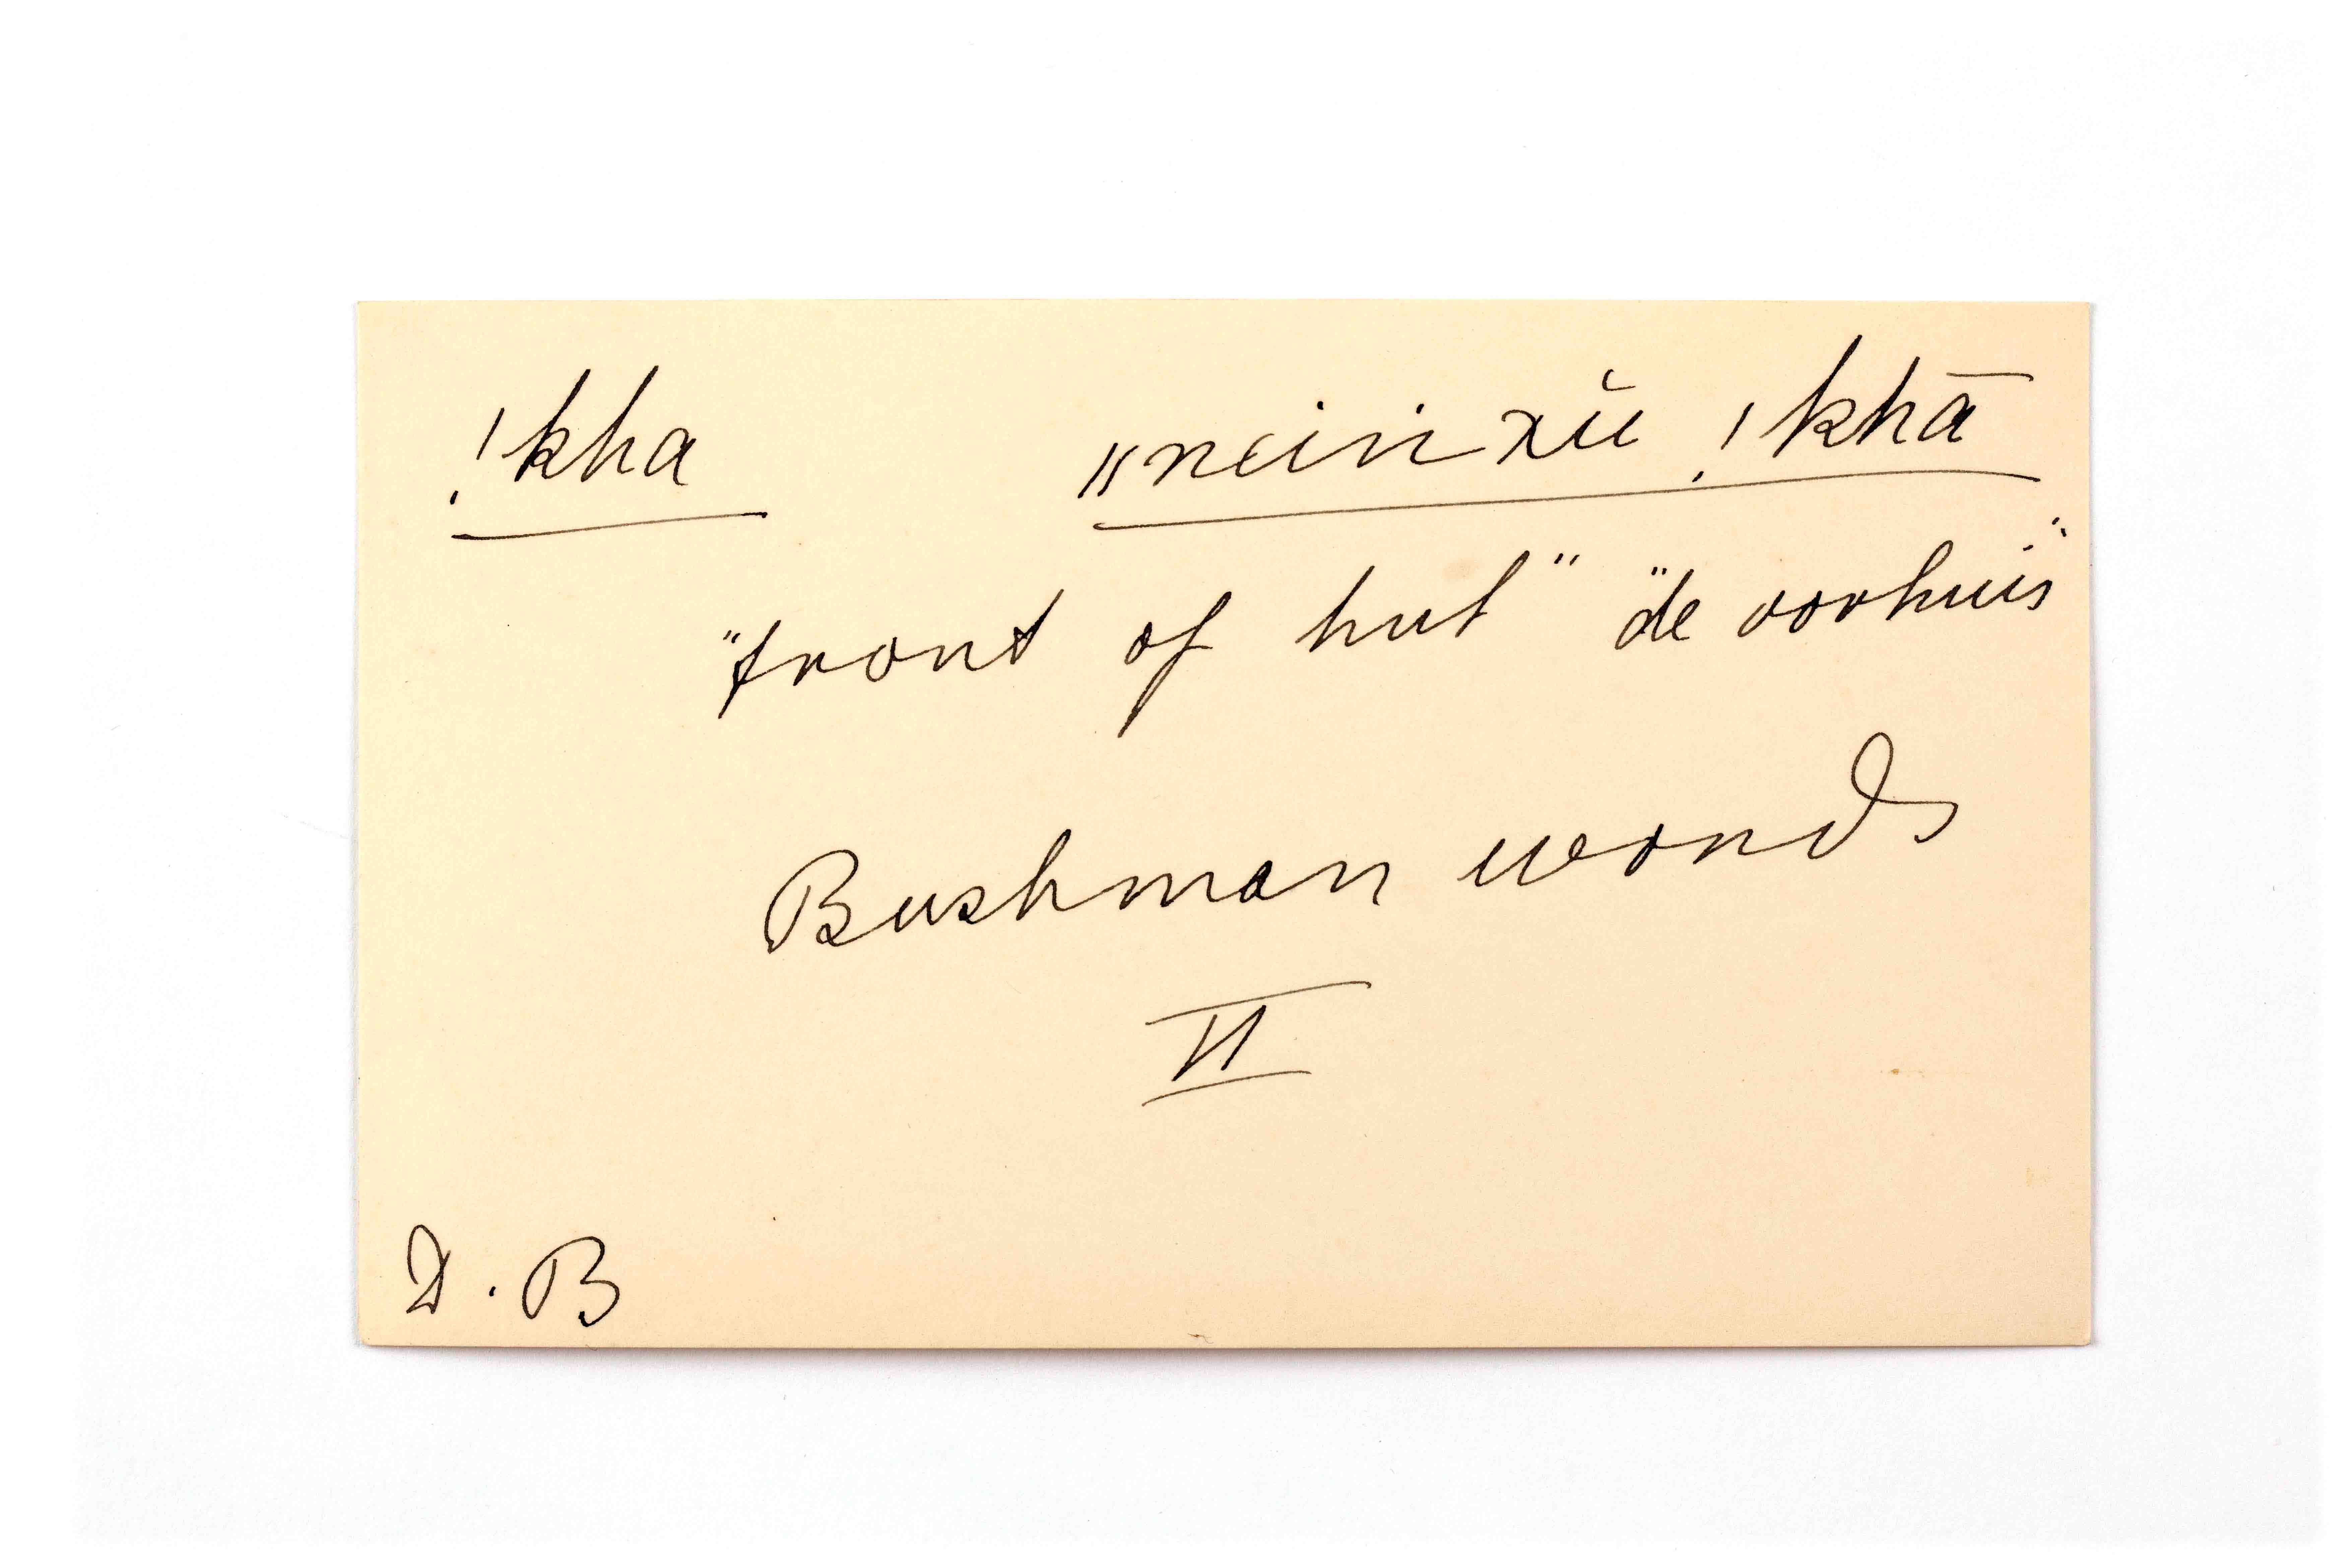 !kha ǁneinxŭ !khā
"front of hut" "de voorhuis"
Bushman words
II
D. B